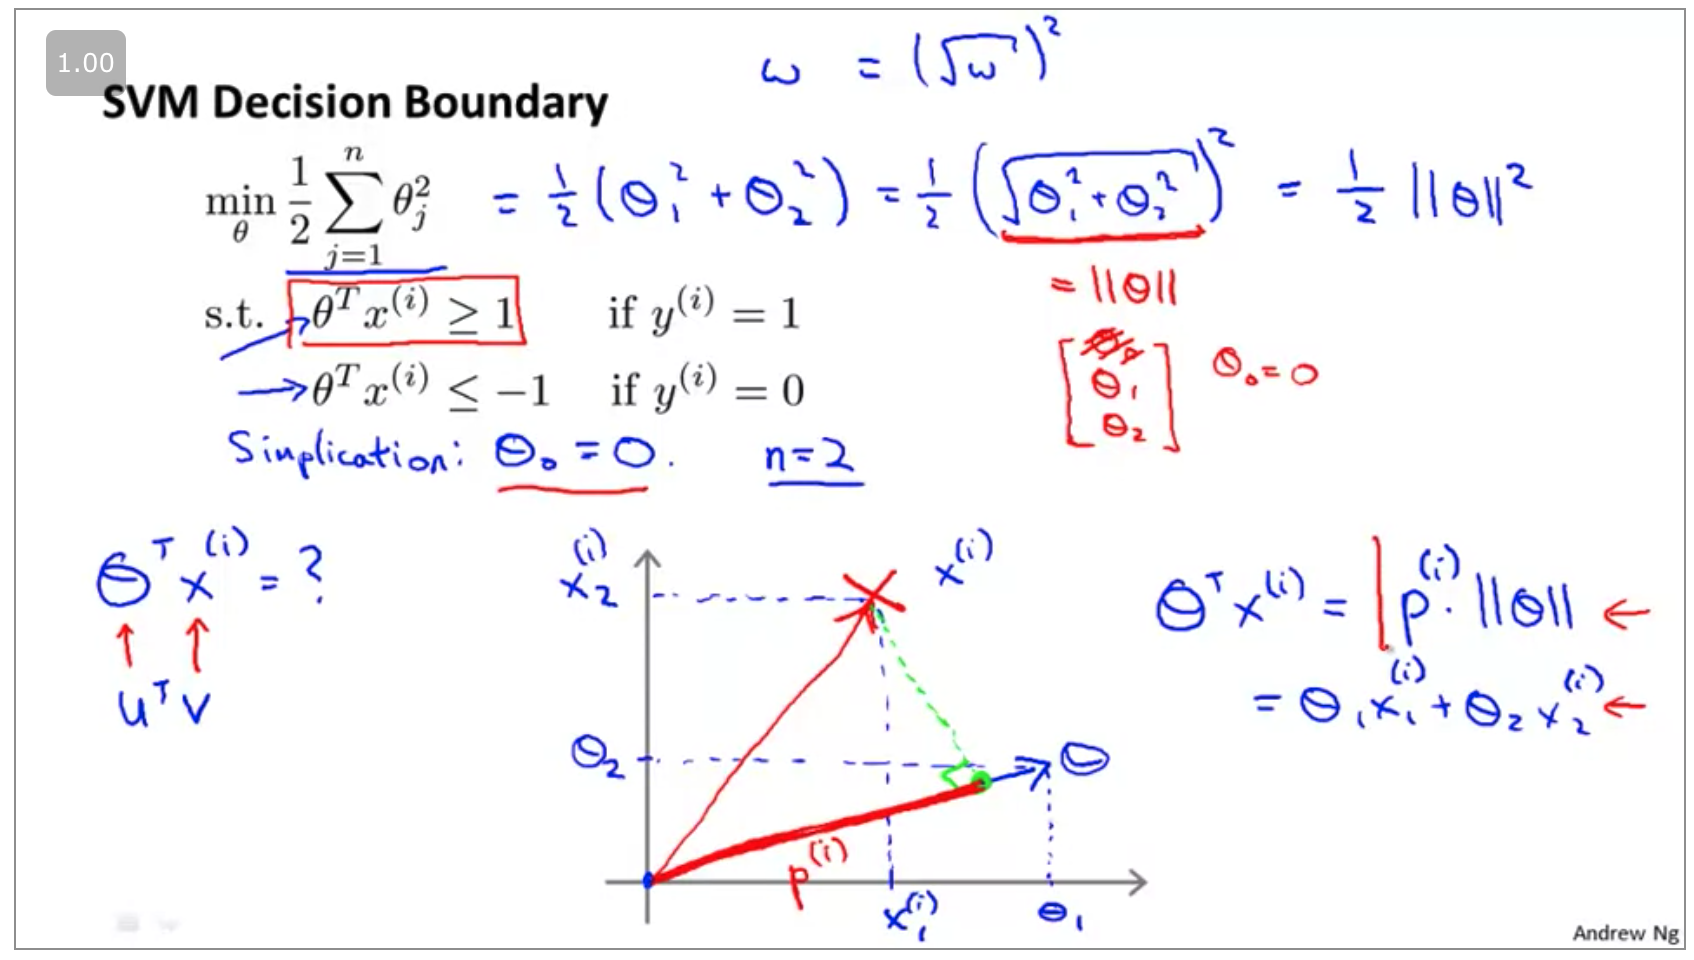 1.00
ω = (√ω)²
SVM Decision Boundary
min_θ 1/2 ∑_{j=1}^{n} θ_j² = 1/2 (θ₁² + θ₂²) = 1/2 (√(θ₁² + θ₂²))² = 1/2 ||θ||²
= ||θ||
s.t. θᵀx⁽ⁱ⁾ ≥ 1 if y⁽ⁱ⁾ = 1
[θ₀ θ₁ θ₂] θ₀ = 0
→ θᵀx⁽ⁱ⁾ ≤ −1 if y⁽ⁱ⁾ = 0
Simplication: θ₀ = 0. n=2
θᵀx⁽ⁱ⁾ = ?
uᵀv
x₂⁽ⁱ⁾
x⁽ⁱ⁾
θ₂
θ
p⁽ⁱ⁾
x₁⁽ⁱ⁾
θ₁
θᵀx⁽ⁱ⁾ = p⁽ⁱ⁾ · ||θ|| ←
= θ₁x₁⁽ⁱ⁾ + θ₂x₂⁽ⁱ⁾ ←
Andrew Ng